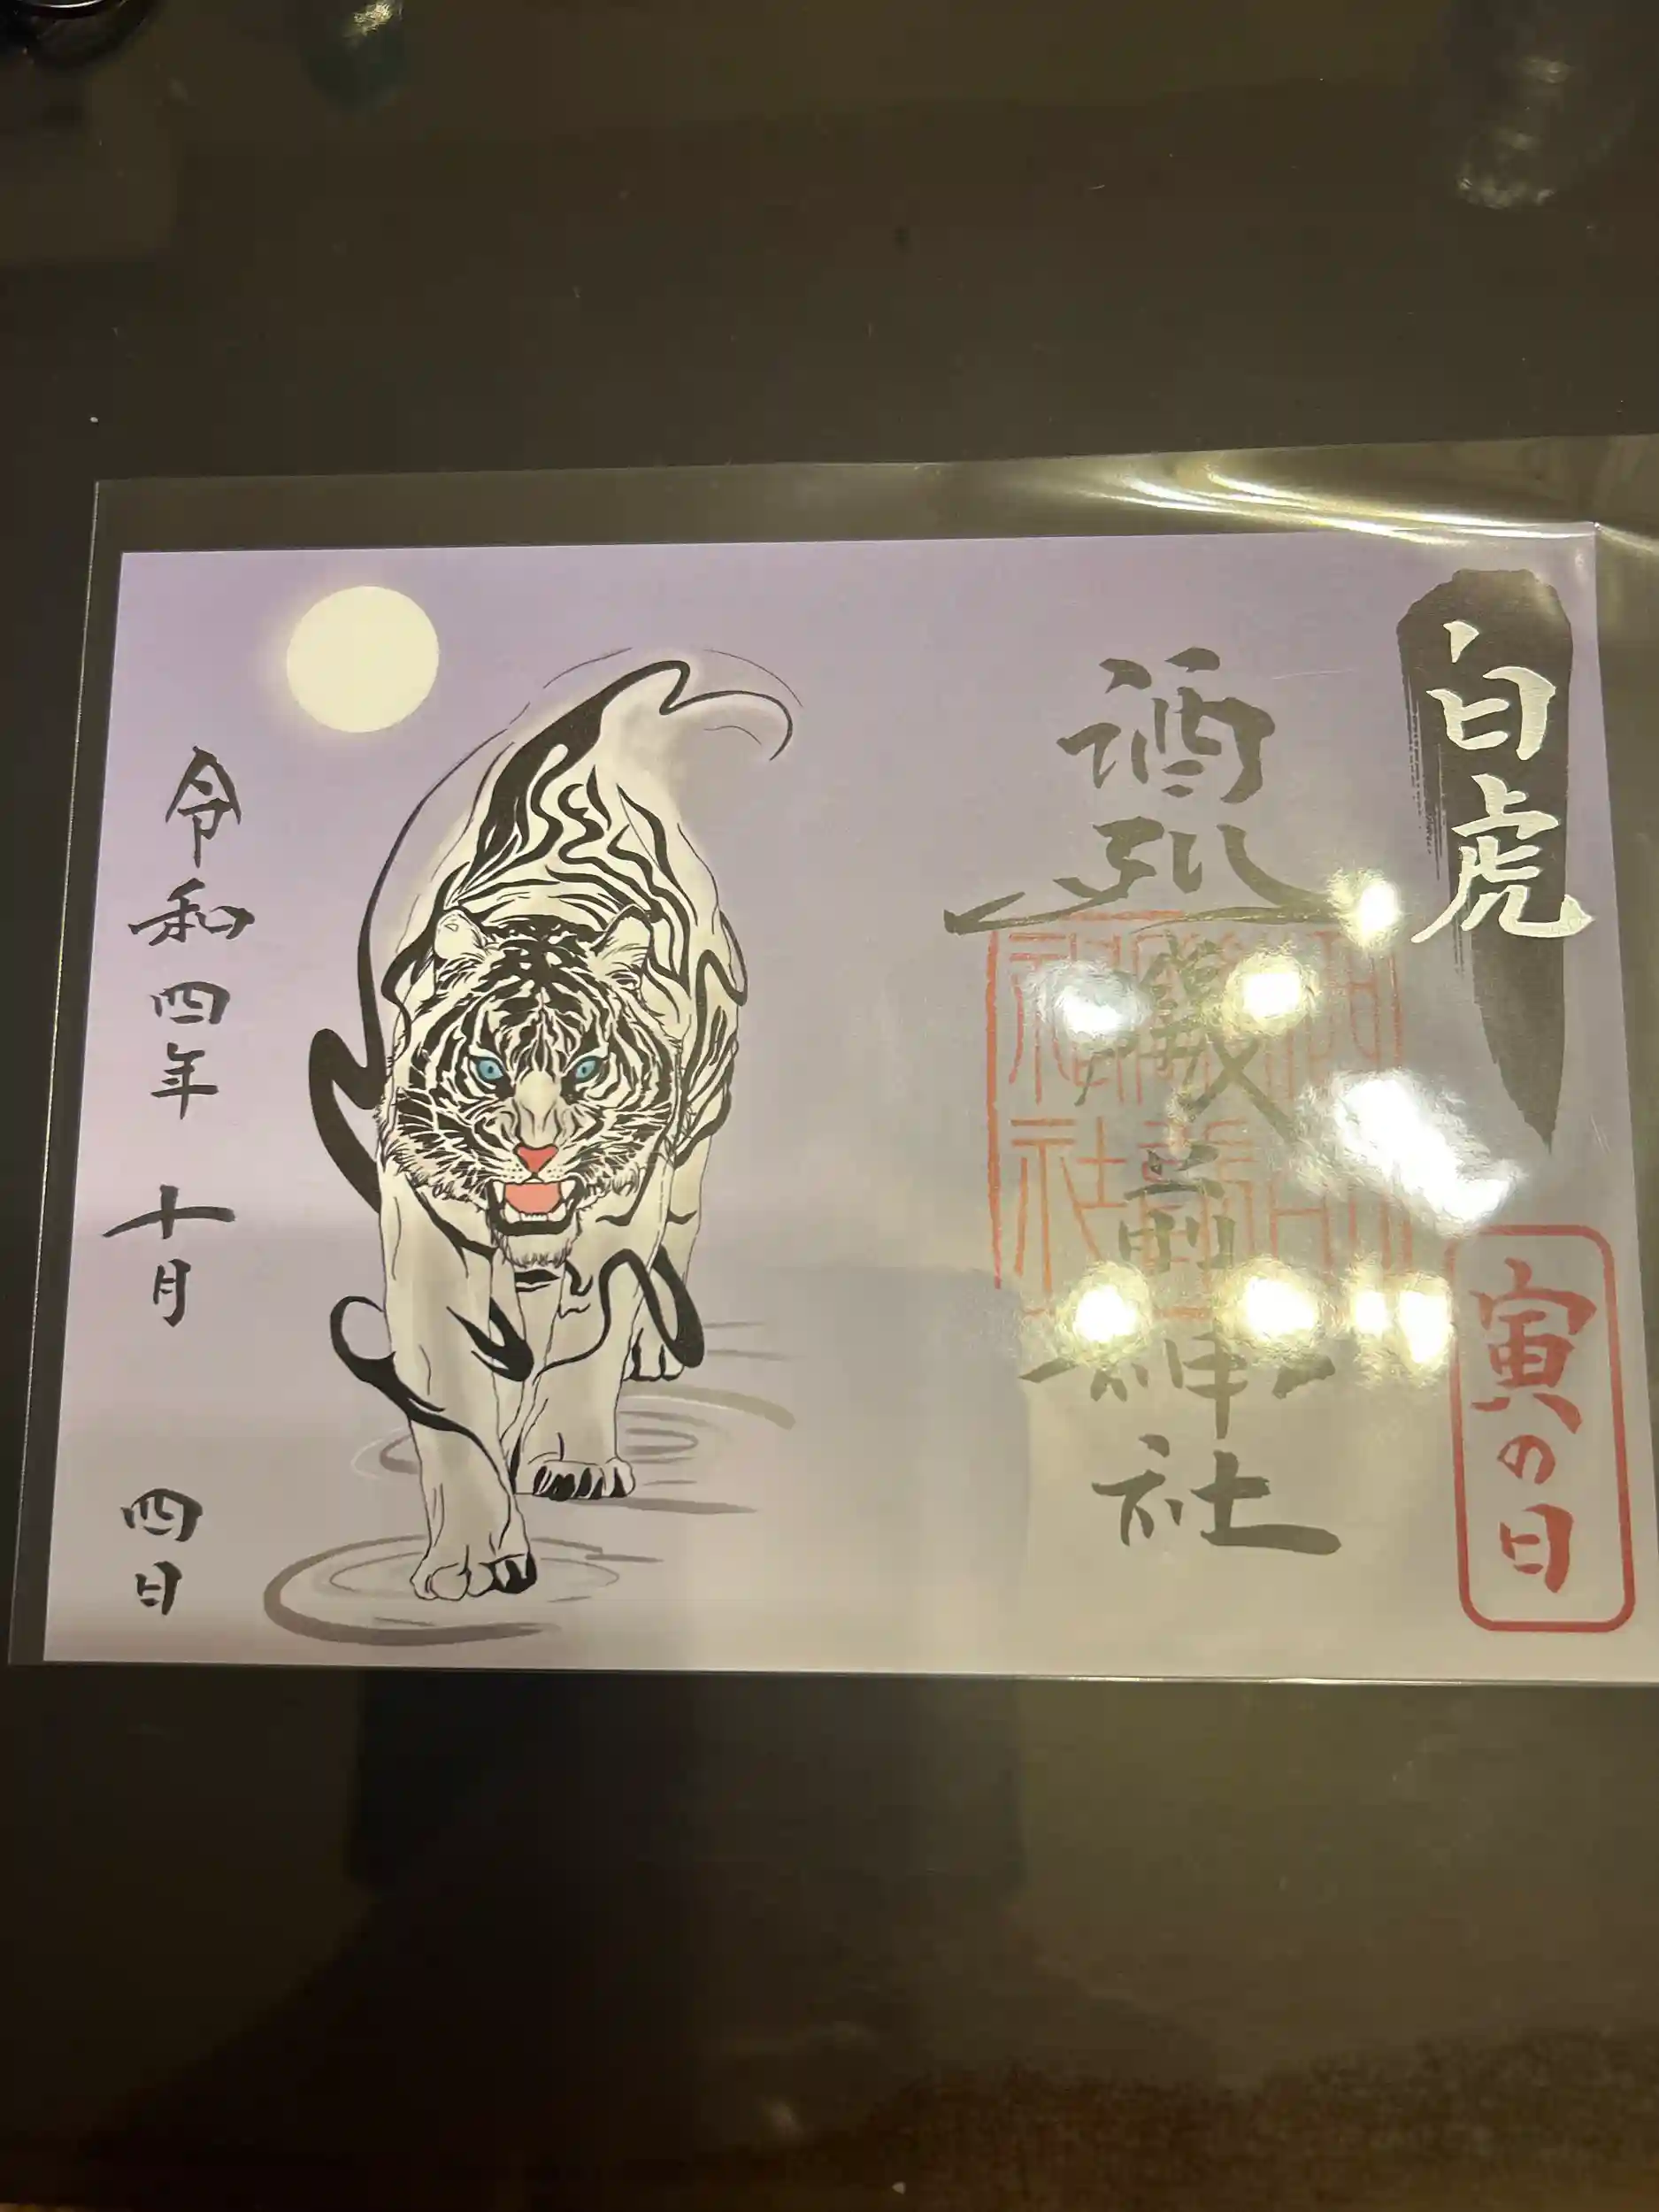 白虎
寅の日
酒列磯前神社
令和四年十月四日